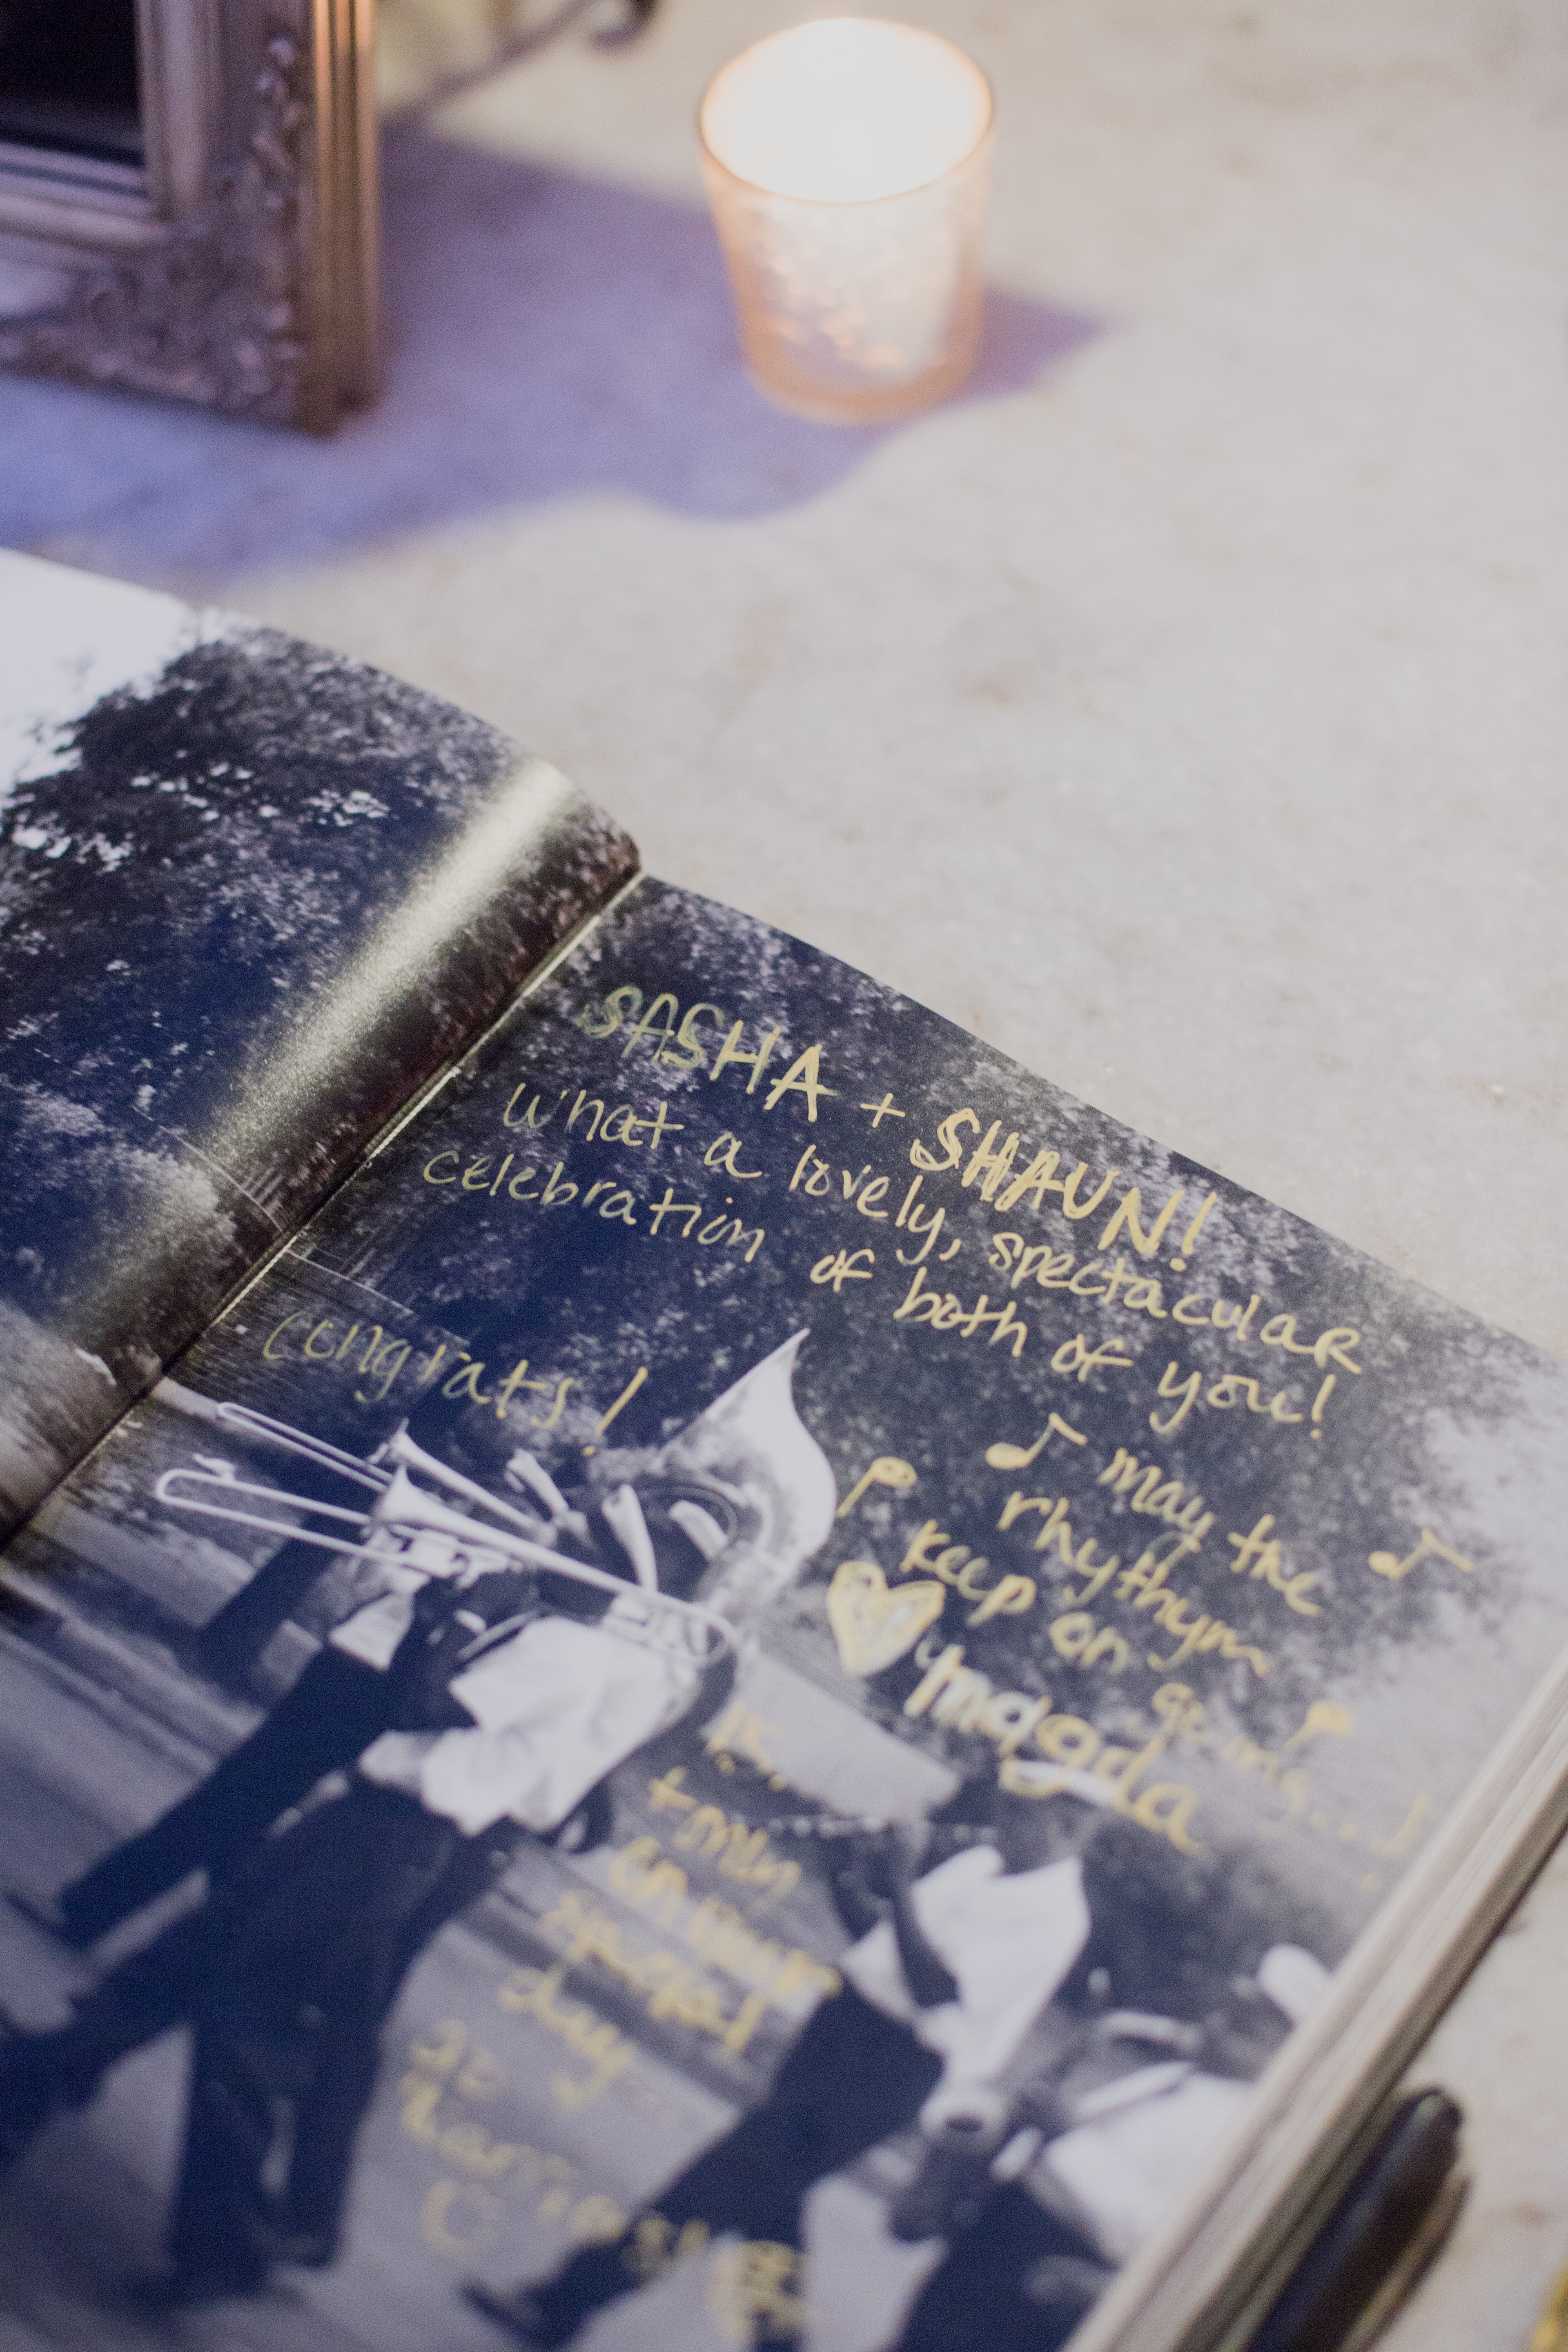 SASHA + SHAUN!
What a lovely, spectacular
celebration of both of you!
congrats!
may the
rhythym
keep on
going...!
magda
on your
special
day.